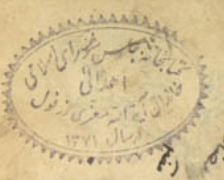 کتابخانه مجلس شورای اسلامی
اهدائی
خاندان آیت الله معزی دزفولی
در سال ۱۳۷۱